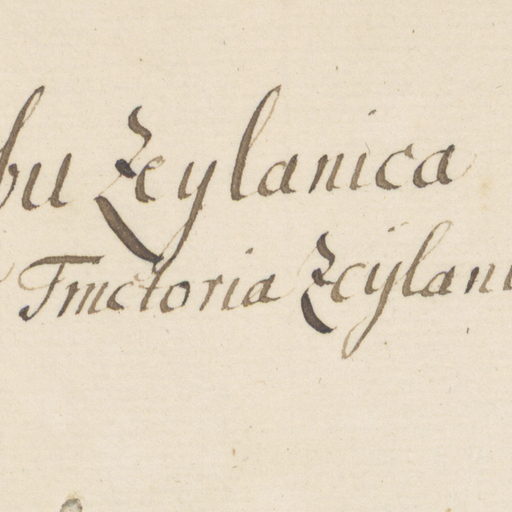 bu Zeylanica
Tinctoria Zeÿlani